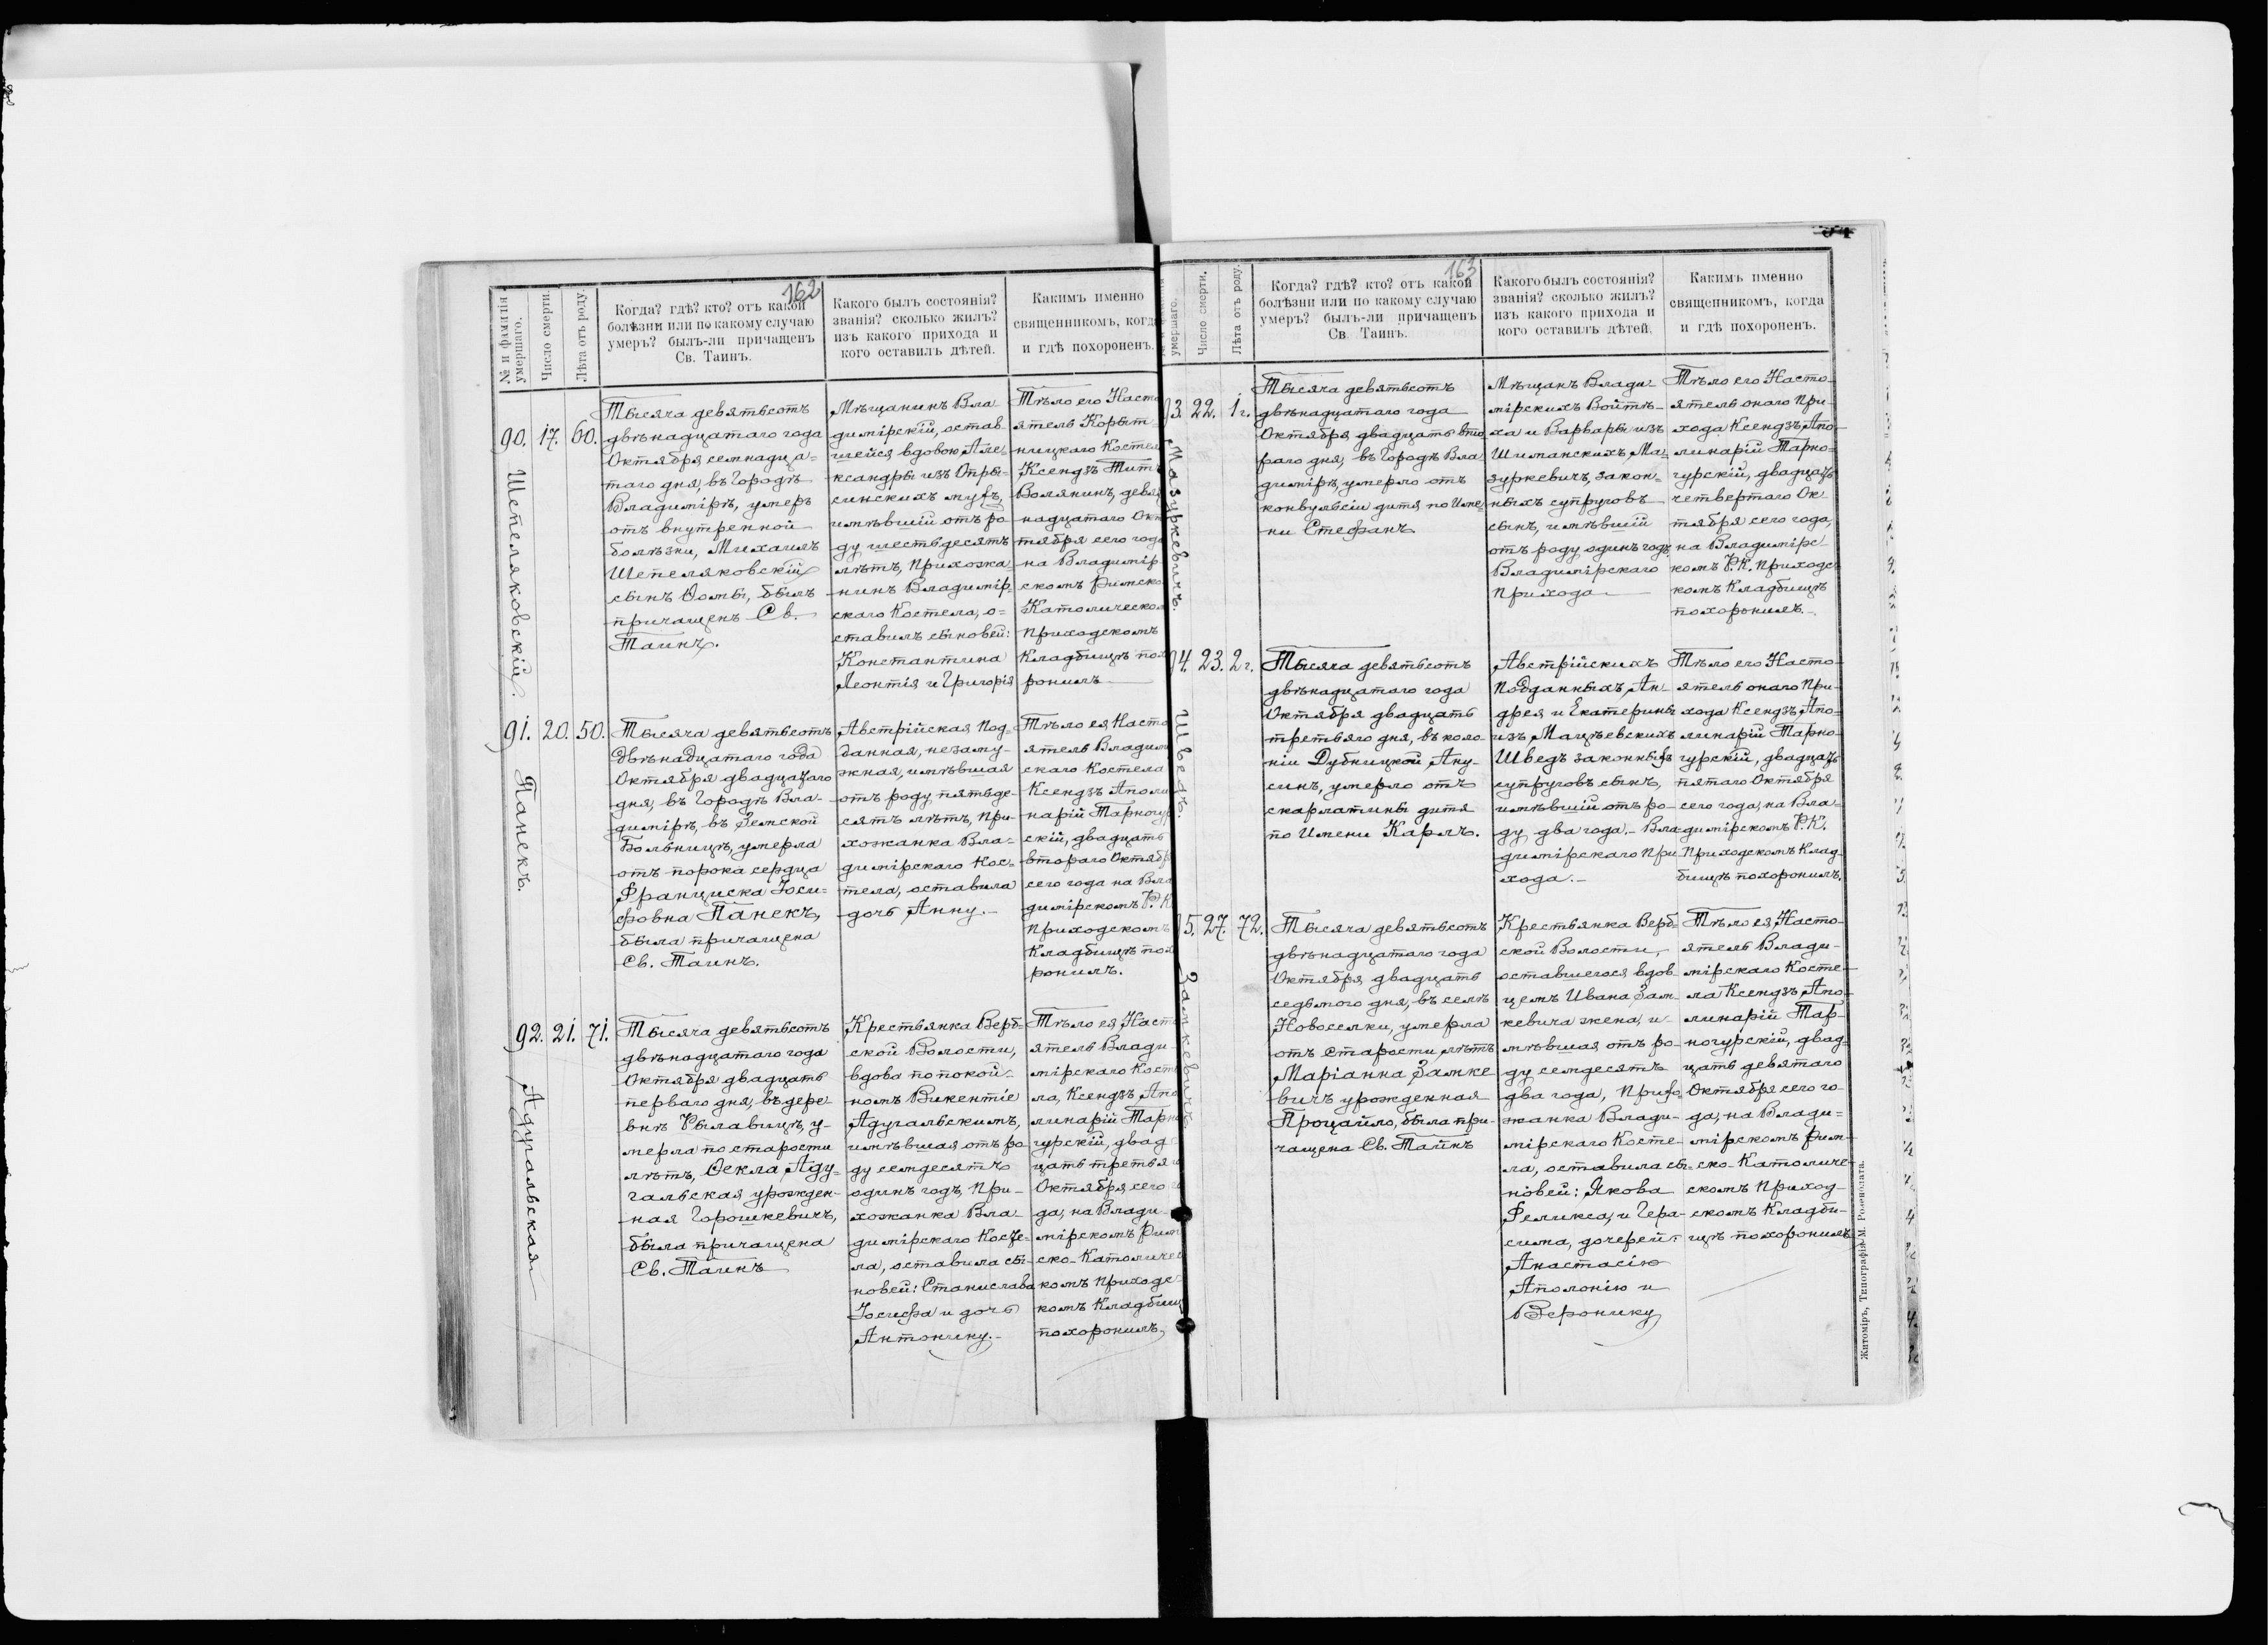 162
№ и фамилія
умершаго.
Число смерти.
Лѣта отъ роду.
Когда? гдѣ? кто? отъ какой
болѣзни или по какому случаю
умеръ? былъ-ли причащенъ
Св. Таинъ.
Какого былъ состоянія?
званія? сколько жилъ?
изъ какого прихода и
кого оставилъ дѣтей.
Какимъ именно
священникомъ, когда
и гдѣ похороненъ.
90.
Шепеляковскій.
17.
60.
Тысяча девятьсотъ
двѣнадцатаго года
Октября семнадца=
таго дня, въ Городѣ
Владимірѣ, умеръ
отъ внутренной
болѣзни, Михаилъ
Шепеляковскій
сынъ Ѳомы, былъ
причащенъ Св.
Таинъ.
Мѣщанинъ Вла
димірскій, остав
шейся вдовою Але
ксандры изъ Опры-
синскихъ мужъ,
имѣвшій отъ ро
ду шестьдесятъ
лѣтъ, Прихожа-
нинъ Владимір-
скаго Костела, о=
ставилъ сыновей:
Константина
Леонтія и Григорія
Тѣло его Насто
ятель Корыт-
ницкаго Костел
Ксендзъ Тит
Волянинъ, девят
надцатаго Окт
тября сего года
на Владимір
скомъ Римско
Католическом
Приходскомъ
Кладбищѣ пох
ронилъ
91.
Панекъ.
20.
50.
Тысяча девятьсотъ
двѣнадцатаго года
Октября двадцатаго
дня, въ Городѣ Вла-
димірѣ, въ Земской
Больницѣ, умерла
отъ порока сердца
Франциска Іоси-
фовна Панекъ,
была причащена
Св. Таинъ.
Австрійская Под-
данная, незаму-
жная, имѣвшая
отъ роду пятьде-
сятъ лѣтъ, При-
хожанка Вла-
димірскаго Кос-
тела, оставила
дочь Анну.-
Тѣло ея Насто
ятель Владим
скаго Костела
Ксендзъ Аполи
нарій Тарногур
скій, двадцать
втораго Октябр
сего года на Вла
димірскомъ Р. К
Приходскомъ
Кладбищѣ пох
ронилъ.
92.
Адугальская
21.
71.
Тысяча девятьсотъ
двѣнадцатаго года
Октября двадцать
перваго дня, въ дере
внѣ Рылавицѣ, у-
мерла по старости
лѣтъ, Ѳекла Аду-
гальская урожден-
ная Горошкевичъ,
была причащена
Св. Таинъ
Крестьянка Верб-
ской Волости,
вдова по покой-
номъ Викентіе
Адугальскимъ,
имѣвшая отъ ро
ду семдесятъ
одинъ годъ, При-
хожанка Вла-
димірскаго Косте-
ла, оставила сы-
новей: Станислава
Іосифа и дочь
Антонину.-
Тѣло ея Насто
ятель Влади
мірскаго Кост
ла, Ксендзъ Апо
линарій Тарно
гурскій, двад
цать третьяго
Октября сего
да, на Влади-
мірскомъ Рим
ско-Католичес
комъ Приходс
комъ Кладбищ
похоронилъ
163
умершаго.
Число смерти.
Лѣта отъ роду.
Когда? гдѣ? кто? отъ какой
болѣзни или по какому случаю
умеръ? былъ-ли причащенъ
Св Таинъ.
Какого былъ состоянія?
званія? сколько жилъ?
изъ какого прихода и
кого оставилъ дѣтей.
Какимъ именно
священникомъ, когда
и гдѣ похороненъ.
93.
Мазуркевичъ.
22.
1 г.
Тысяча девятьсотъ
двѣнадцатаго года
Октября двадцать вто
раго дня, въ Городѣ Вла
димірѣ, умерло отъ
конвульсіи дитя по Име-
ни Стефанъ
Мѣщанъ Влади
мірскихъ Войтѣ-
ха и Варвары изъ
Шиманскихъ Ма-
зуркевичъ, закон-
ныхъ супруговъ
сынъ, имѣвшій
отъ роду одинъ годъ,
Владимірскаго
Прихода
Тѣло его Насто-
ятель онаго При-
хода Ксендзъ Апо-
линарій Тарно-
гурскій, двадцать
четвертаго Ок
тября сего года,
на Владимірс-
комъ Р.К. Приходс
комъ Кладбищѣ
похоронилъ.
94.
Шведъ.
23.
2 г.
Тысяча девятьсотъ
двѣнадцатаго года
Октября двадцать
третьяго дня, въ коло-
ніи Дубницкой, Ану-
синъ, умерло отъ
скарлатины дитя
по Имени Карлъ.
Австрійскихъ
Подданныхъ, Ан-
дрея и Екатерины
изъ Мацѣевскихъ
Шведъ законныхъ
супруговъ сынъ,
имѣвшій отъ ро-
ду два года.- Вла-
димірскаго При
хода.-
Тѣло его Насто-
ятель онаго При-
хода Ксендзъ Апо-
линарій Тарно-
гурскій, двадцать
пятаго Октября
сего года, на Вла-
димірскомъ Р.К.
Приходскомъ Клад-
бищѣ похоронилъ.
5.
Замкевичъ
27.
72.
Тысяча девятьсотъ
двѣнадцатаго года
Октября двадцать
седьмого дня, въ селѣ
Новоселки, умерла
отъ старости лѣтъ
Маріанна Замке
вичъ урожденная
Процайло, была при-
чащена Св. Таинъ
Крестьянка Верб-
ской Волости,
оставшегося вдов-
цемъ Ивана Зам-
кевича жена, и-
мѣвшая отъ ро-
ду семдесятъ
два года, Прихо
жанка Влади-
мірскаго Косте-
ла, оставила сы-
новей: Якова
Феликса, и Гера-
сима, дочерей:
Анастасію
Аполонію и
Веронику
Тѣло ея, Насто-
ятель Влади-
мірскаго Косте-
ла Ксендзъ Апо-
линарій Тар-
ногурскій, двад-
цать девятаго
Октября сего го-
да, на Влади-
мірскомъ Рим-
ско-Католиче-
скомъ Приход-
скомъ Кладби-
щѣ похоронилъ
Житоміръ, Типографія М. Розенблата.